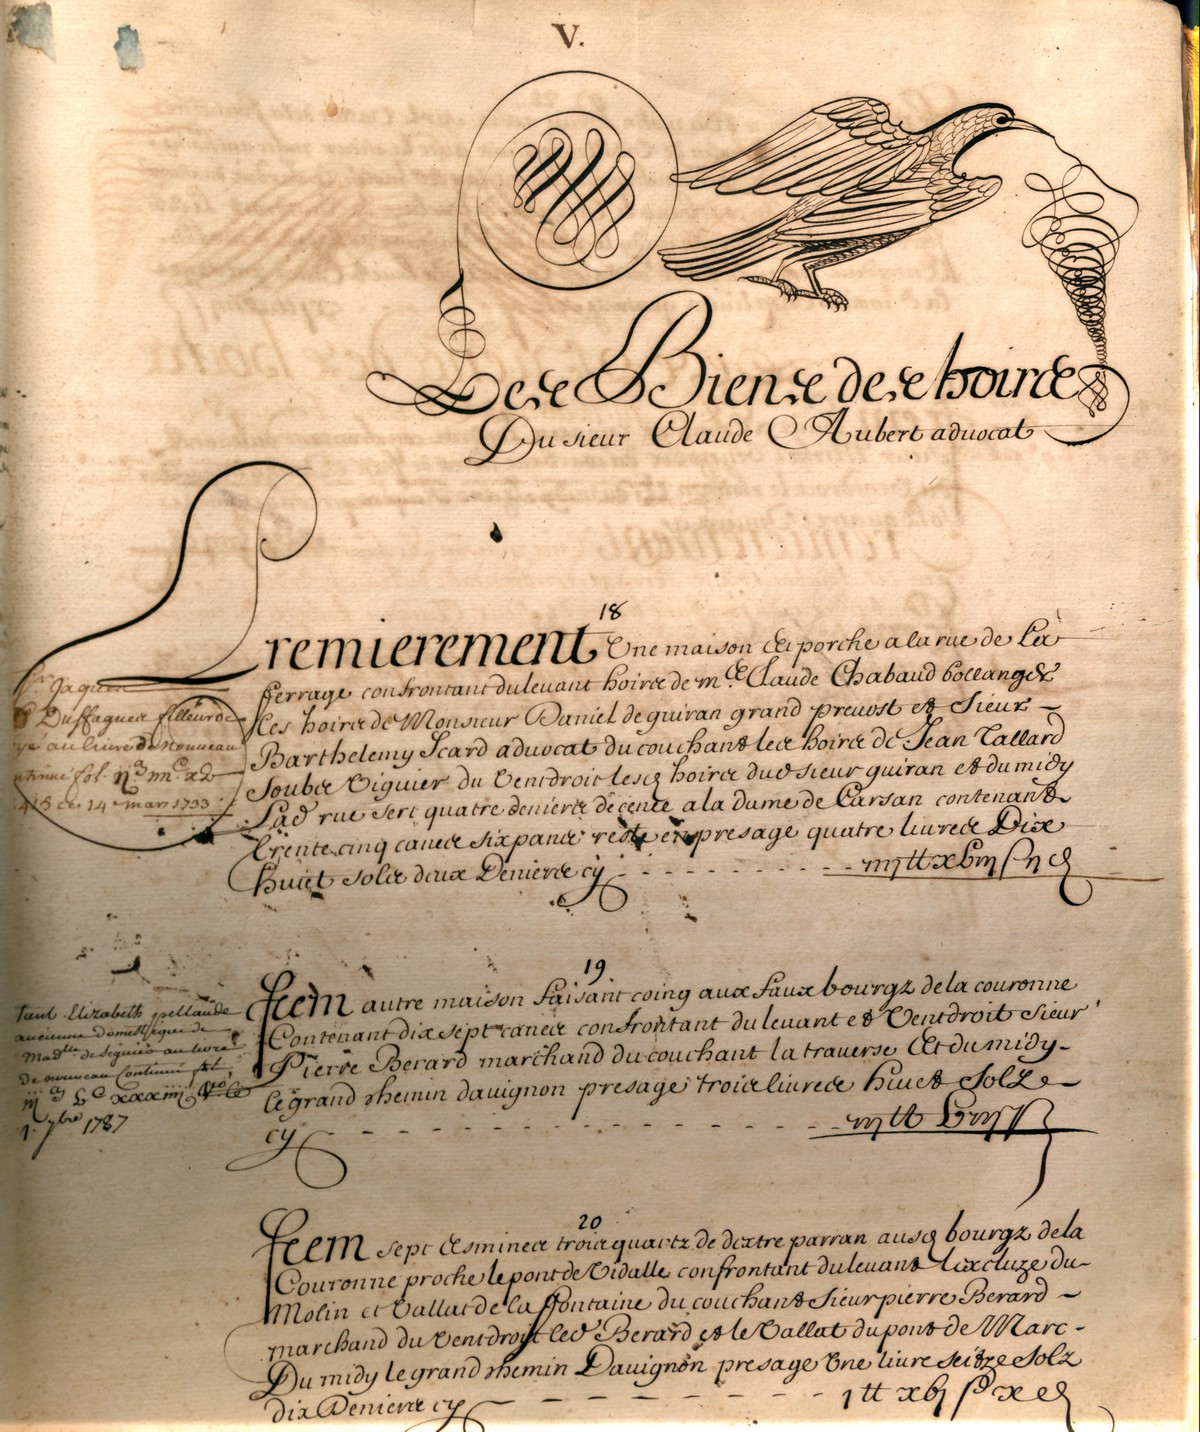 V.
Les Biens des hoirs
Du sieur Claude Aubert advocat
18
Premierement Une maison et porche a la rue de La
ferrage confrontant du levant hoirs de m.e Claude Chabaud bollanger
Les hoirs de Monsieur Daniel de guiran grand prevost et Sieur
Barthelemy Icard advocat du couchant les hoirs de Jean Tallard
Soubz Viguier du Ventdroit lesq hoirs dud sieur guiran et du midy
Lad rue sert quatre deniers de cence a la dame de Carsan contenant
Trente cinq canes six pans reste en presage quatre livres Dix
huict solz deux Deniers cy
19
Item autre maison faisant coing aux faux bourgz de la couronne
Contenant dix sept canes confrontant du levant et Ventdroit Sieur
Pierre Berard marchand du couchant la traverse Et du midy
Le grand chemin davignon presage trois livres huict solz
cy
tient Elizabeth pellaude
ancienne domestique de
Mad.lle de seguiro au livre
de nouveau Continué fol,
1. 7bre 1787
20
Item sept esmines trois quartz de dextre parran ausq bourgz de la
Couronne proche le pont de Vidalle confrontant du levant Lexcluze du
Molin et Vallat de la ffontaine du couchant Sieur pierre Berard
marchand du Ventdroit led Berard et le Vallat du pont de Marc
Du midy le grand chemin Davignon presage Une livre seitze solz
dix Deniers cy